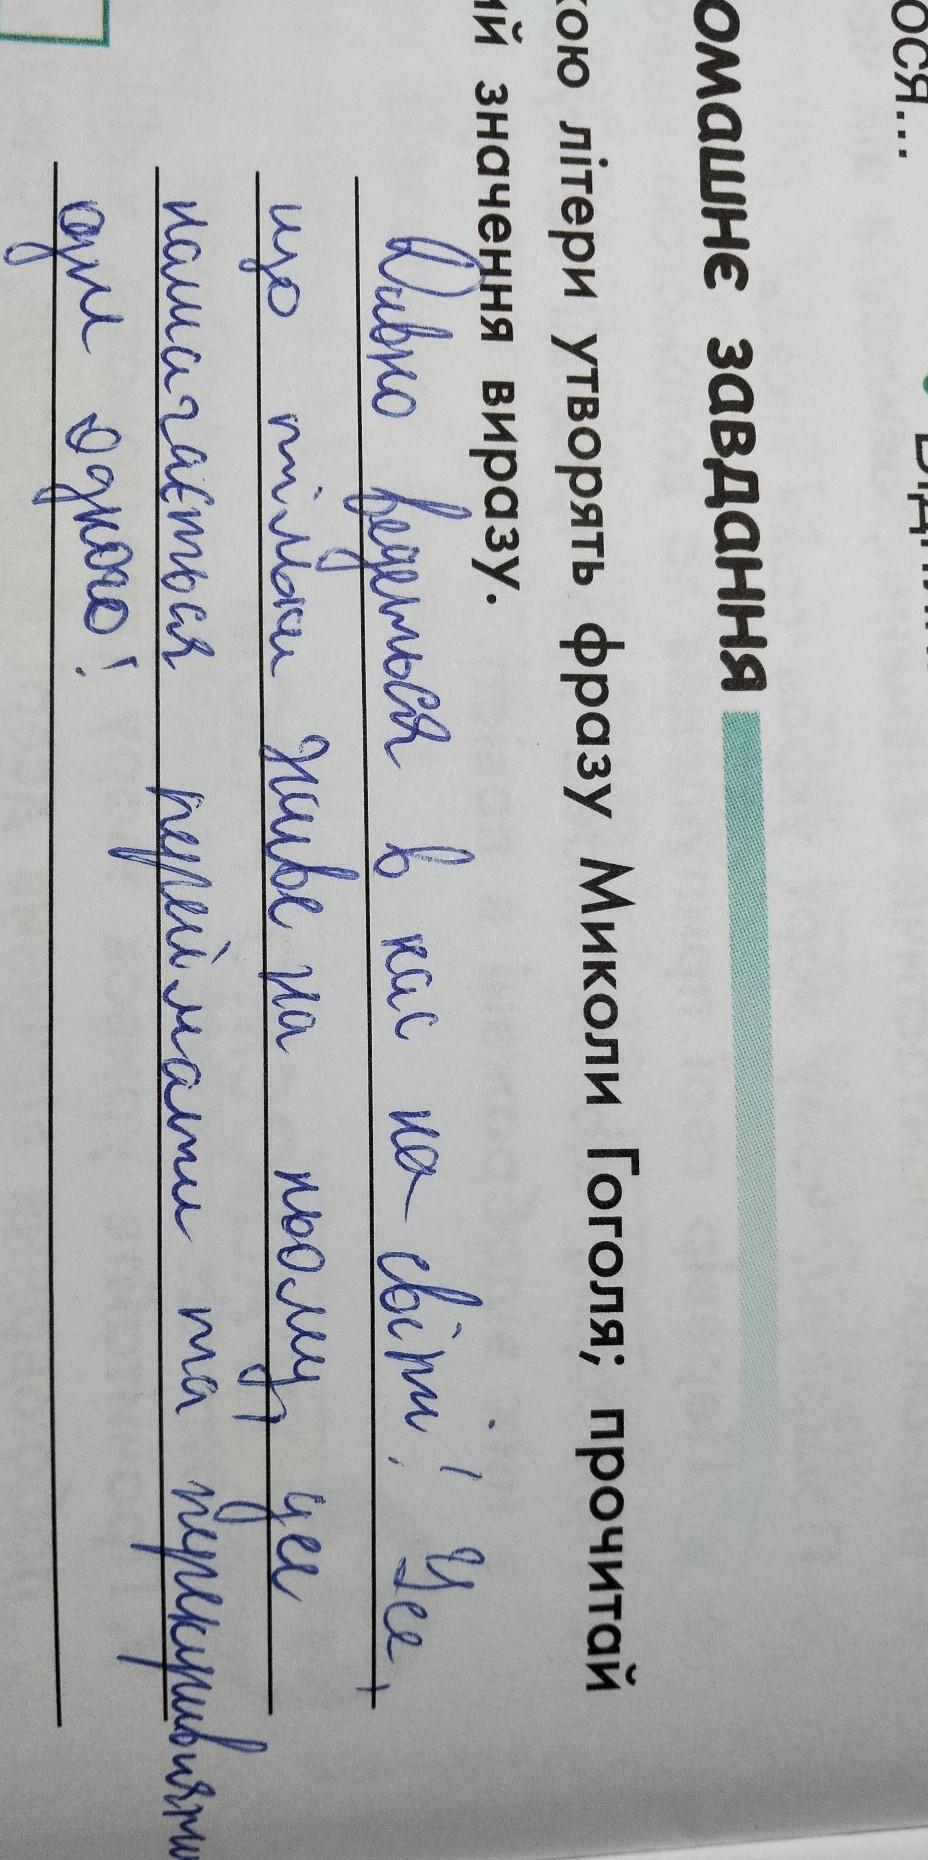 ося...
омашнє завдання
кою літери утворять фразу Миколи Гоголя; прочитай
ий значення виразу.
Дивно ведеться в нас на світі! Усе,
що тільки живе на ньому, усе
намагається переймати та перекривляти
одне одного!